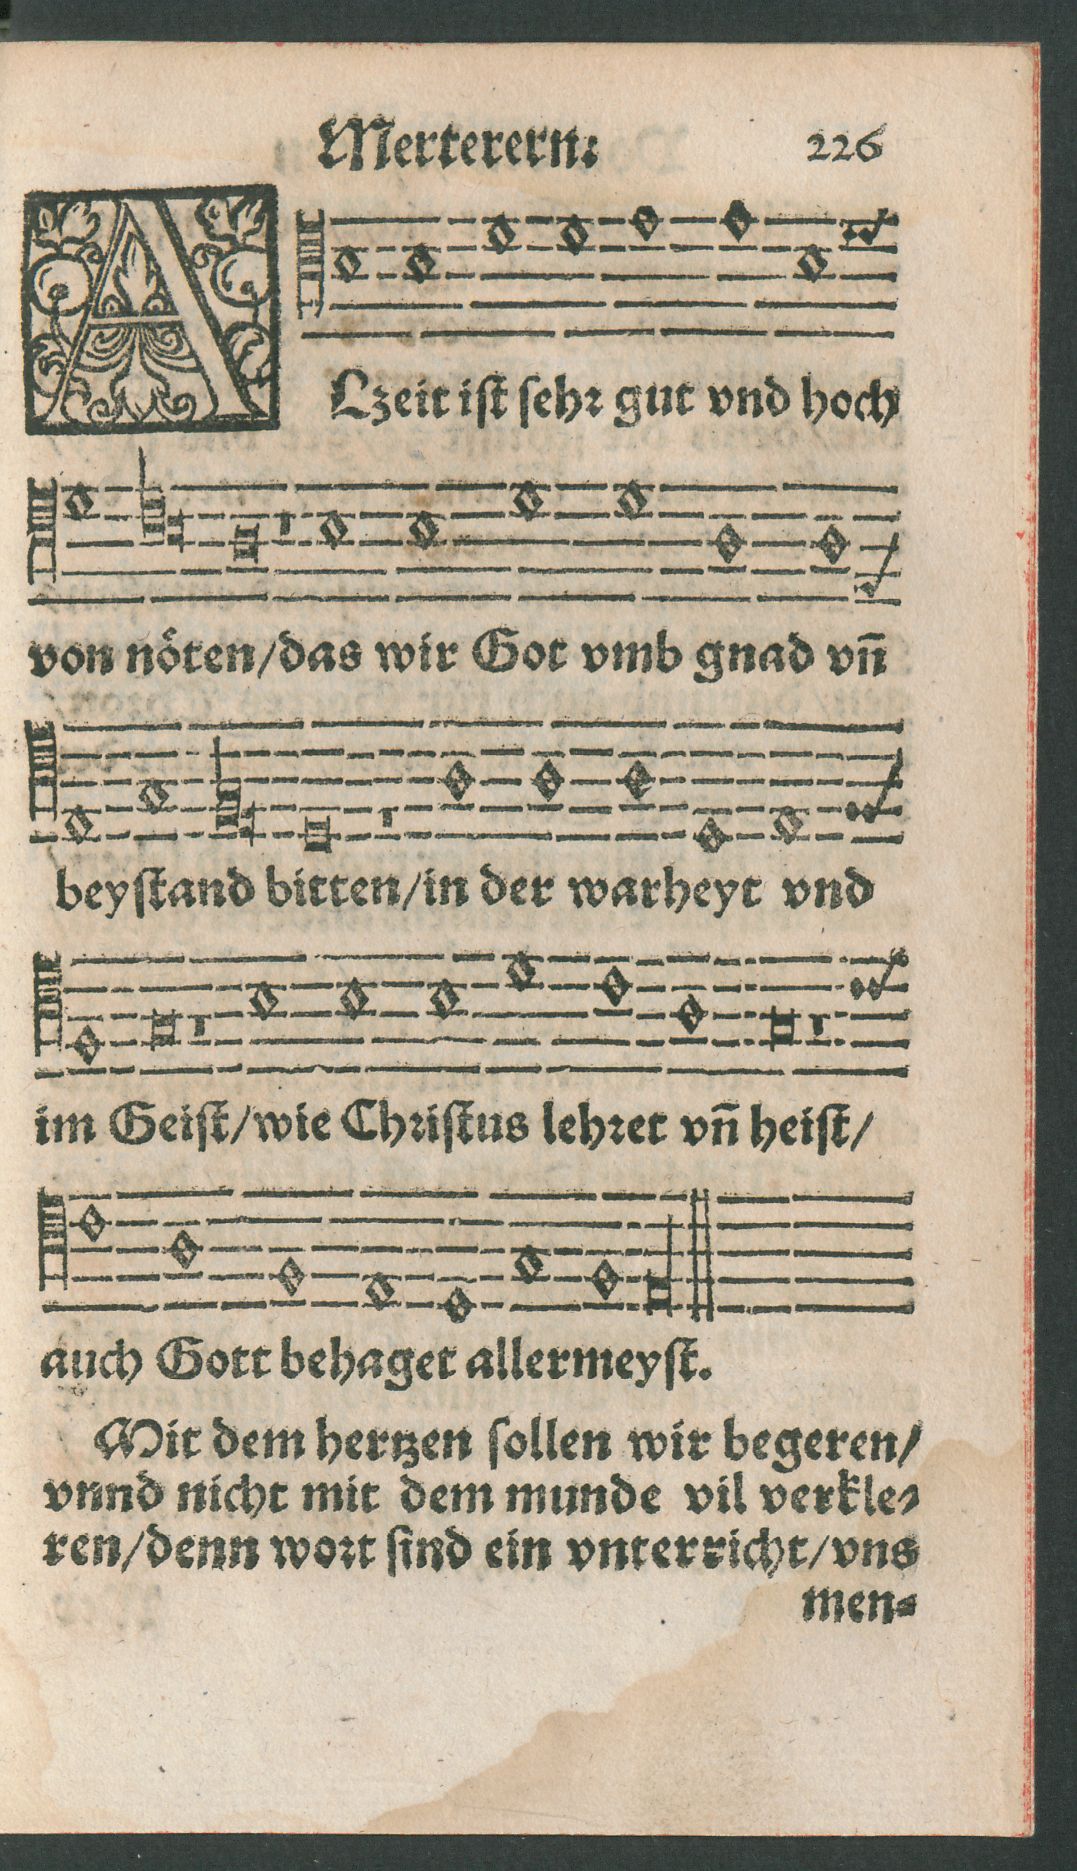 Merterern: 226
ALzeit ist sehr gut vnd hoch
von nöten/das wir Got vmb gnad vñ
beystand bitten/in der warheyt vnd
im Geist/wie Christus lehret vñ heist/
auch Gott behaget allermeyst.
Mit dem hertzen sollen wir begeren/
vnnd nicht mit dem munde vil verkle-
ren/denn wort sind ein vnterricht/vns
men-